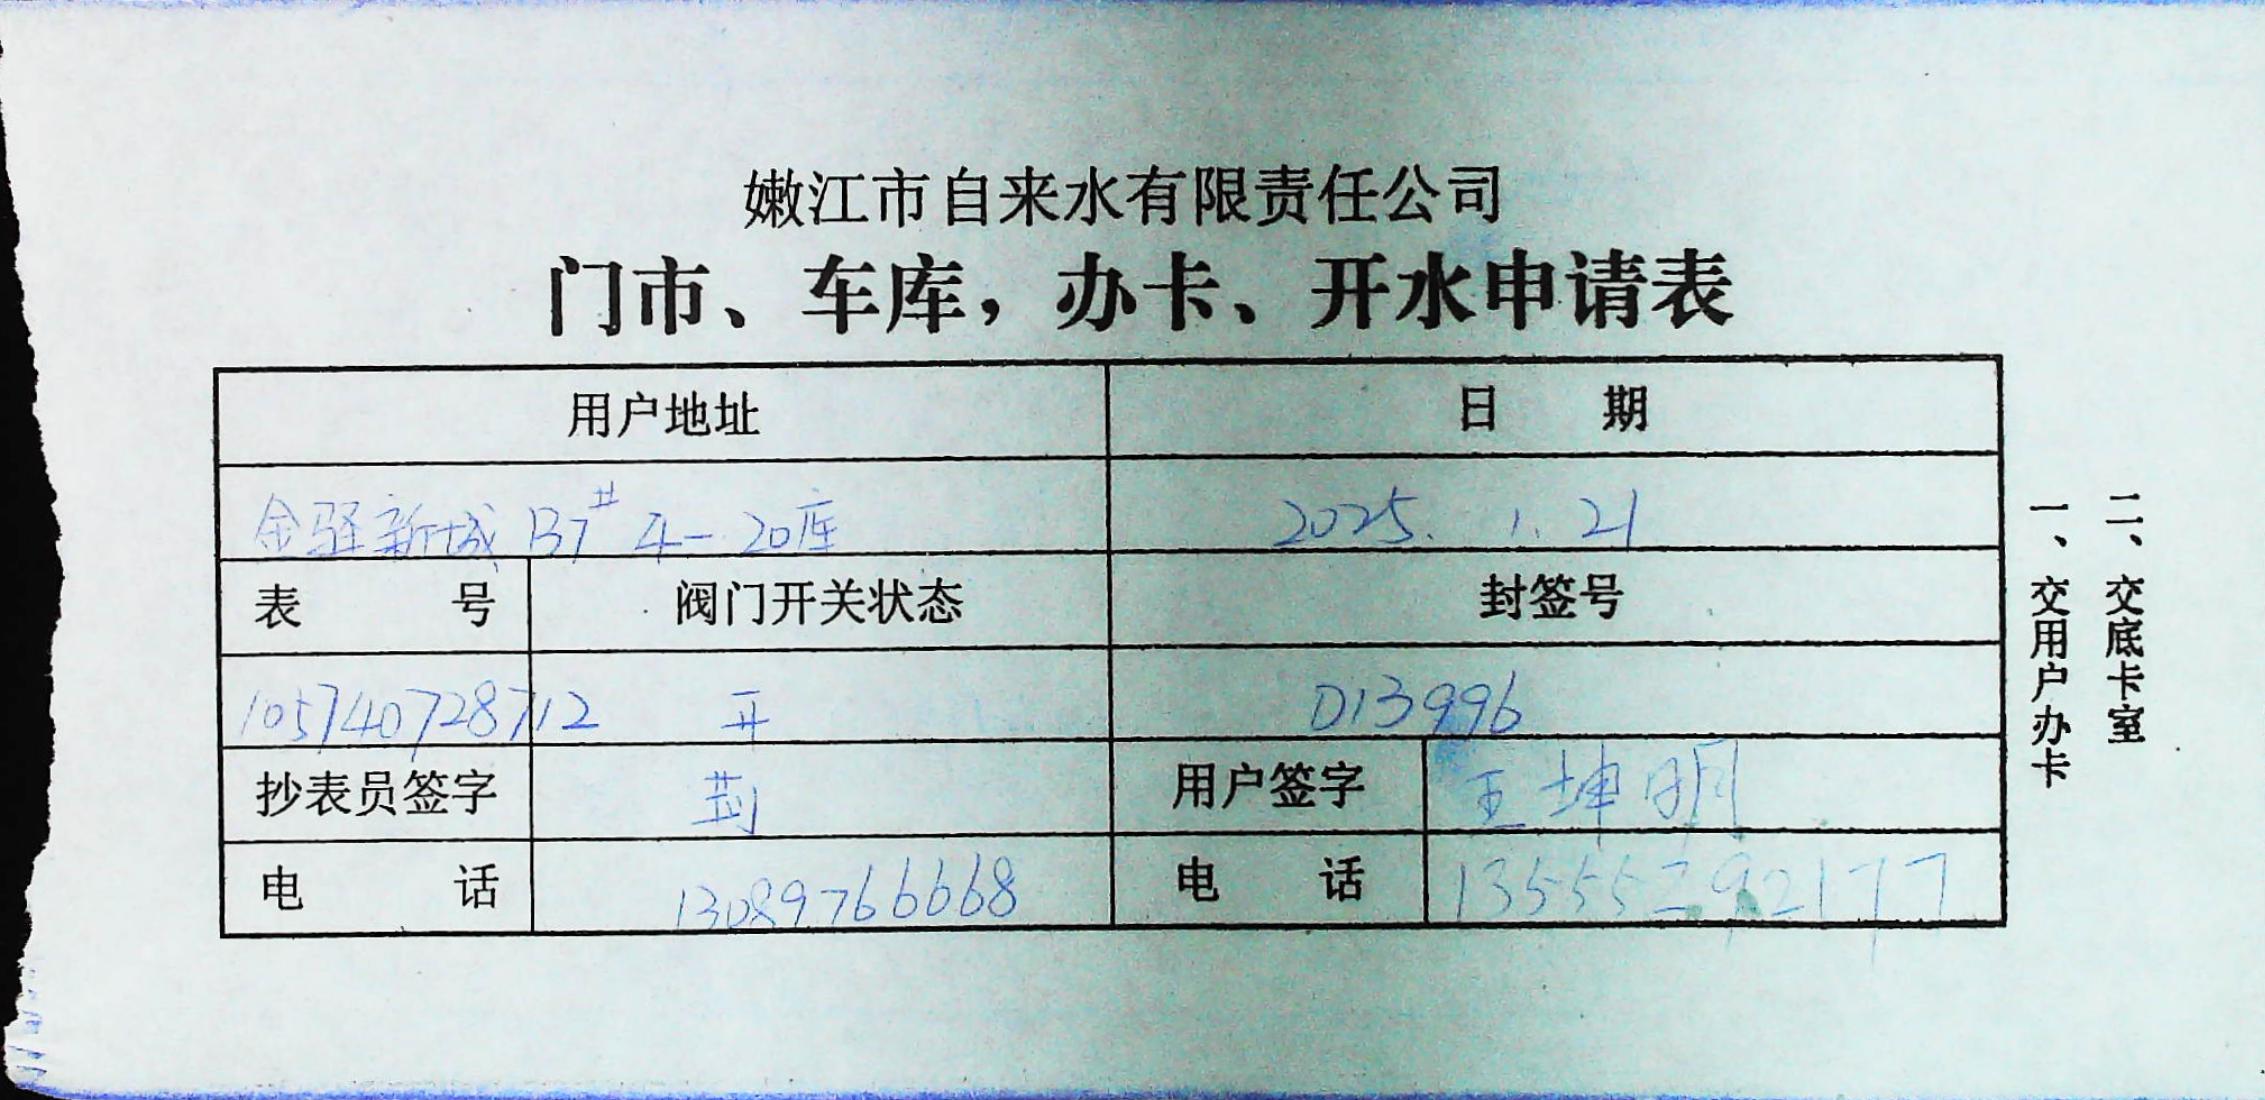 嫩江市自来水有限责任公司
门市、车库，办卡、开水申请表
用户地址 日 期
金驿新城 B7# 4-20库 2025. 1. 21
表 号 阀门开关状态 封签号
105740728712 开 D13996
抄表员签字 用户签字 王坤明
电 话 13089766668 电 话 13555292177
一、交用户办卡
二、交底卡室